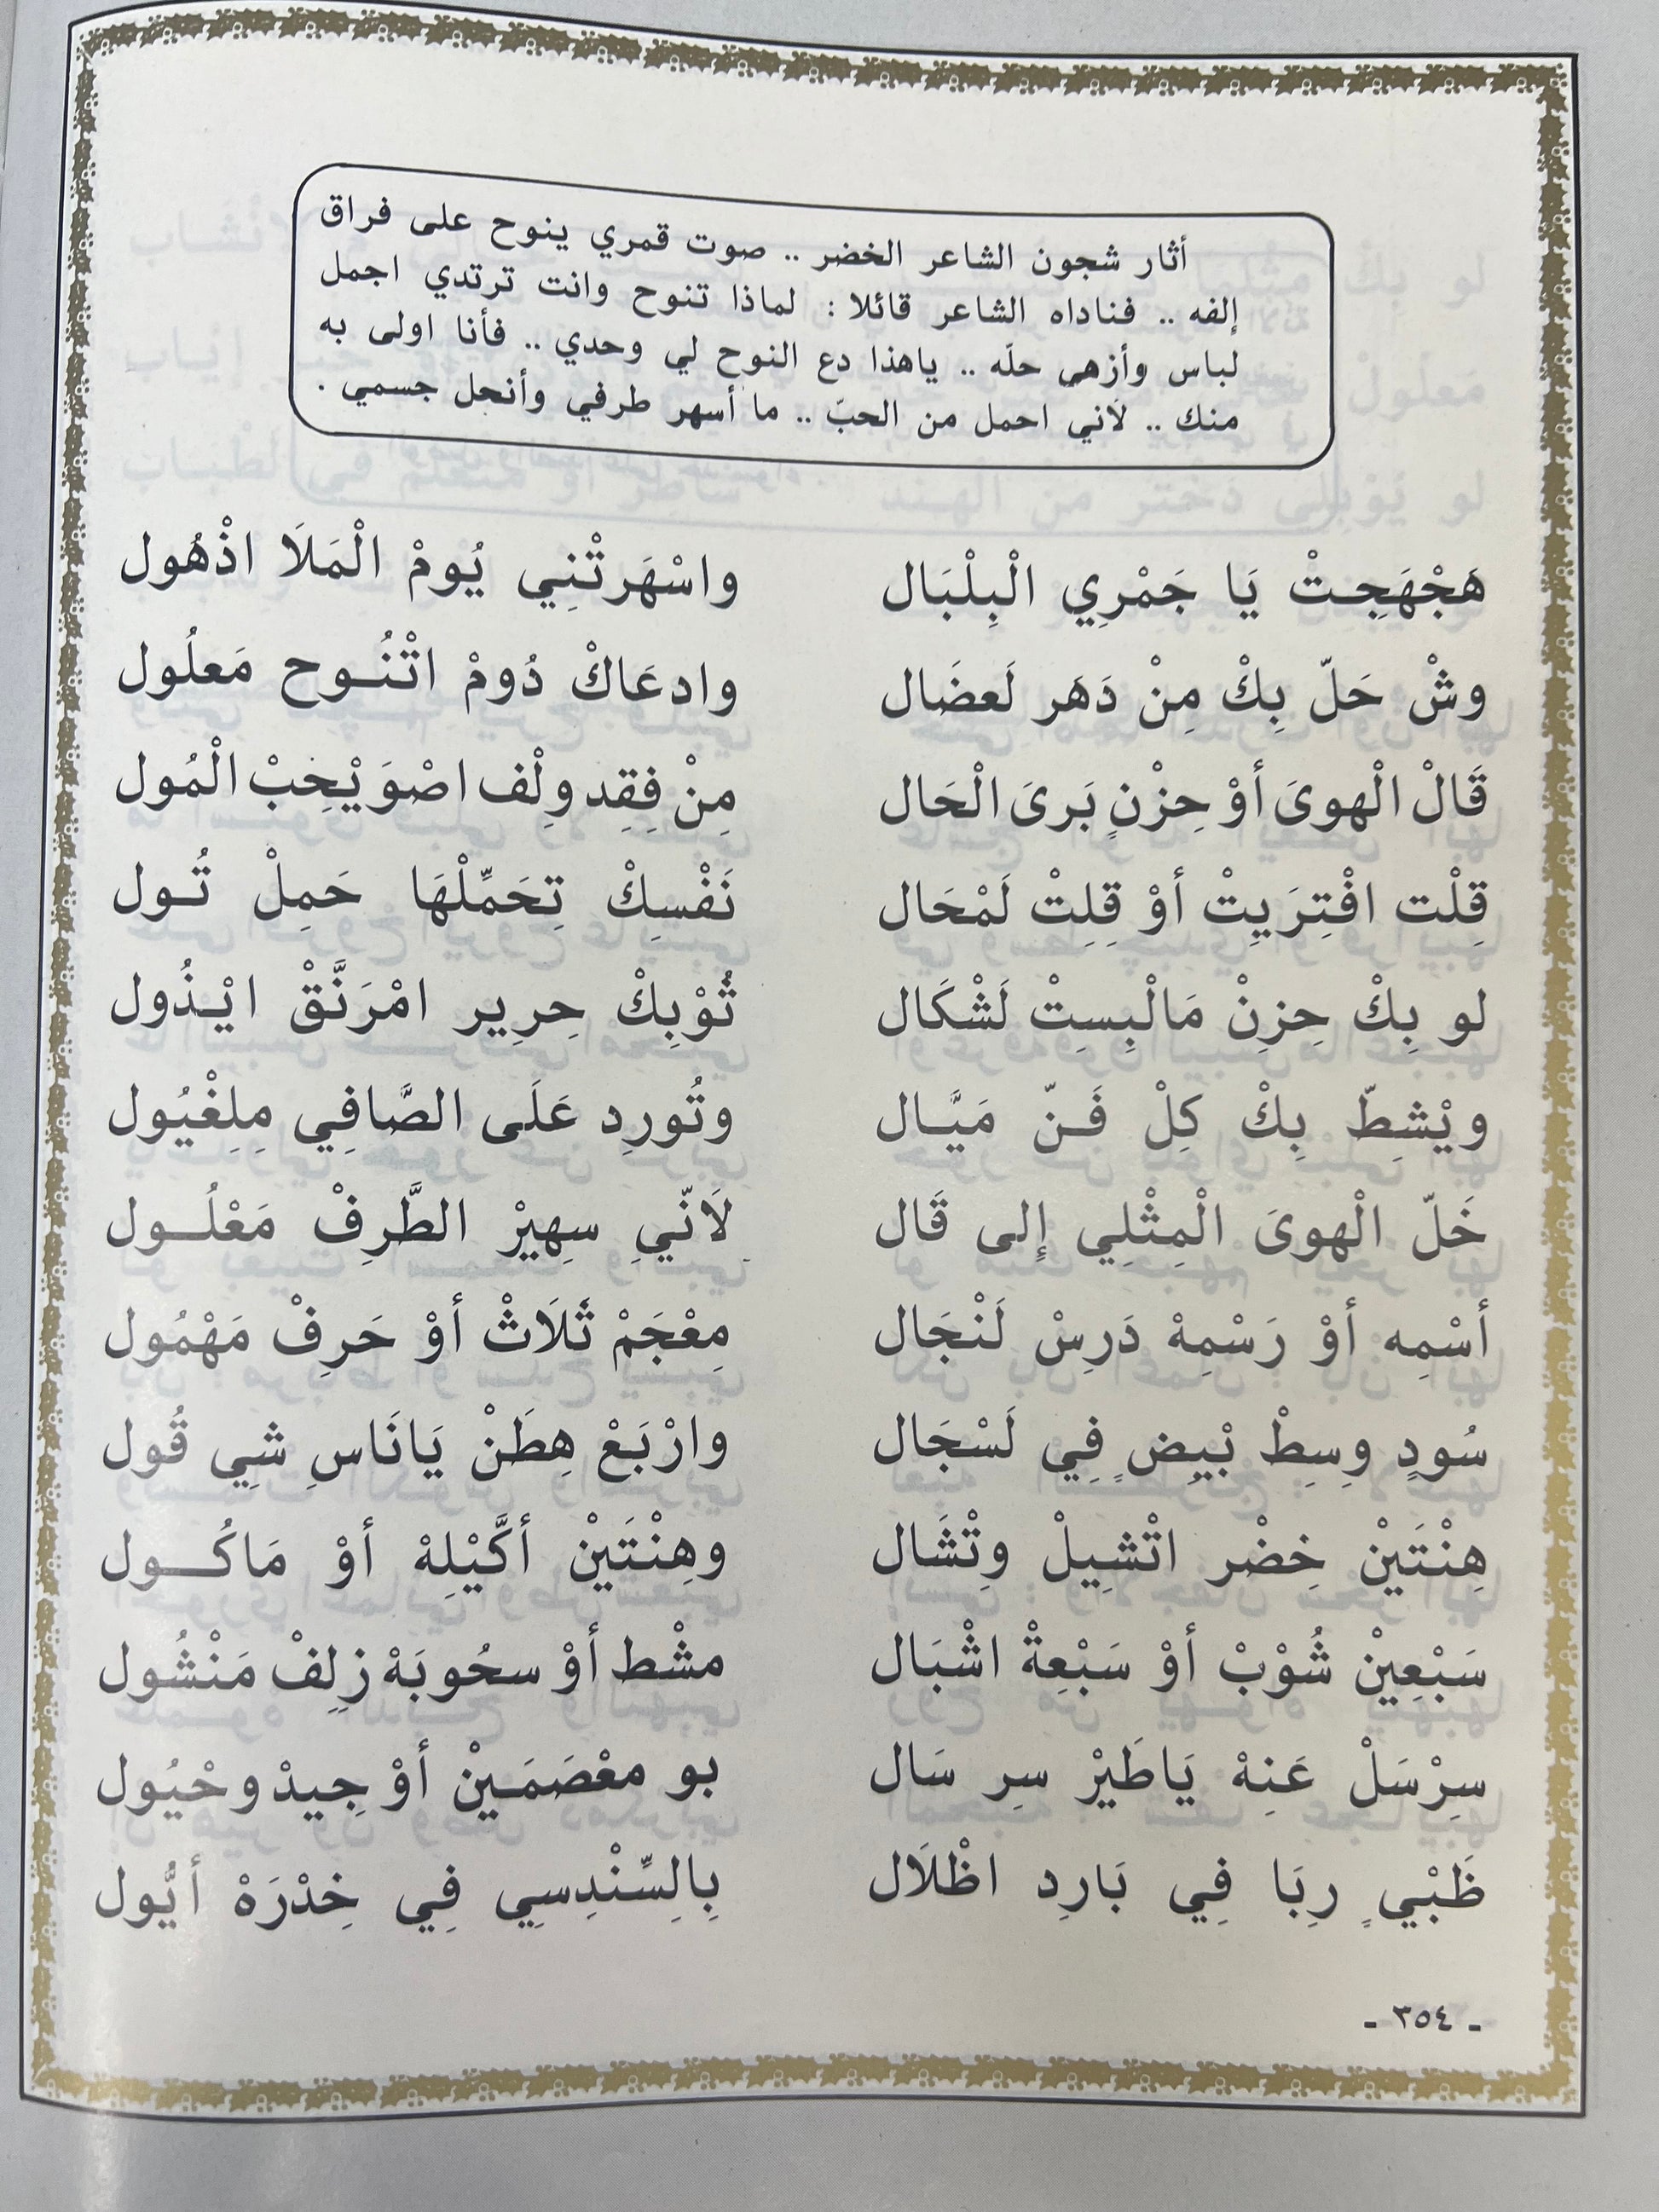 أثار شجون الشاعر الخضر .. صوت قمري ينوح على فراق
إلفه .. فناداه الشاعر قائلا : لماذا تنوح وانت ترتدي اجمل
لباس وأزهى حلّه .. ياهذا دع النوح لي وحدي .. فأنا اولى به
منك .. لاني احمل من الحبّ .. ما أسهر طرفي وأنحل جسمي .
هَجْهَجِتْ يَا جَمْرِي الْبِلْبَال واسْهَرتْنِي يُومْ الْمَلَا اذْهُول
وشْ حَلّ بِكْ مِنْ دَهَر لَعضَال وادعَاكْ دُومْ اتْنُوح مَعلُول
قَالْ الْهوىَ أوْ حِزْنٍ بَرىَ الْحَال مِنْ فِقِد ولْف اصْوَيْحِبْ الْمُول
قِلْت افْتِرَيِتْ أوْ قِلِتْ لَمْحَال نَفْسِكْ تِحَمِّلْهَا حَمِلْ تُول
لو بِكْ حِزِنْ مَالْبِسِتْ لَشْكَال ثُوْبِكْ حِرِير امْرَنَّقْ ايْذُول
ويْشِطّ بِكْ كِلْ فَنّ مَيَّال وتُورِد عَلَى الصَّافِي مِلِغْيُول
خَلّ الْهوىَ الْمِثْلِي إِلى قَال لَانّي سِهِيرْ الطَّرِفْ مَعْلُول
أسْمِه أوْ رَسْمِهْ دَرِسْ لَنْجَال مِعْجَمْ ثَلَاثْ أوْ حَرِفْ مَهْمُول
سُودٍ وِسِطْ بْيِضٍ فِي لَسْجَال وارْبَعْ هِطَنْ يَانَاسِ شِي قُول
هِنْتَيْنْ خِضْر اتْشِيلْ وِتْشَال وهِنْتَيْنْ أكَّيْلِهْ أوْ مَاكُول
سَبْعِينْ شُوْبْ أوْ سَبْعِةْ اشْبَال مشْط أوْ سحُوبَهْ زلِفْ مَنْشُول
سِرْسَلْ عَنِهْ يَاطَيْرْ سِر سَال بو معْصَمَيْنْ أوْ جِيدْ وحْيُول
ظَبْيٍ رِبَا فِي بَارِد اظْلَال بِالِسِّنْدِسِي فِي خِدْرَهْ أيُّول
- ٣٥٤ -